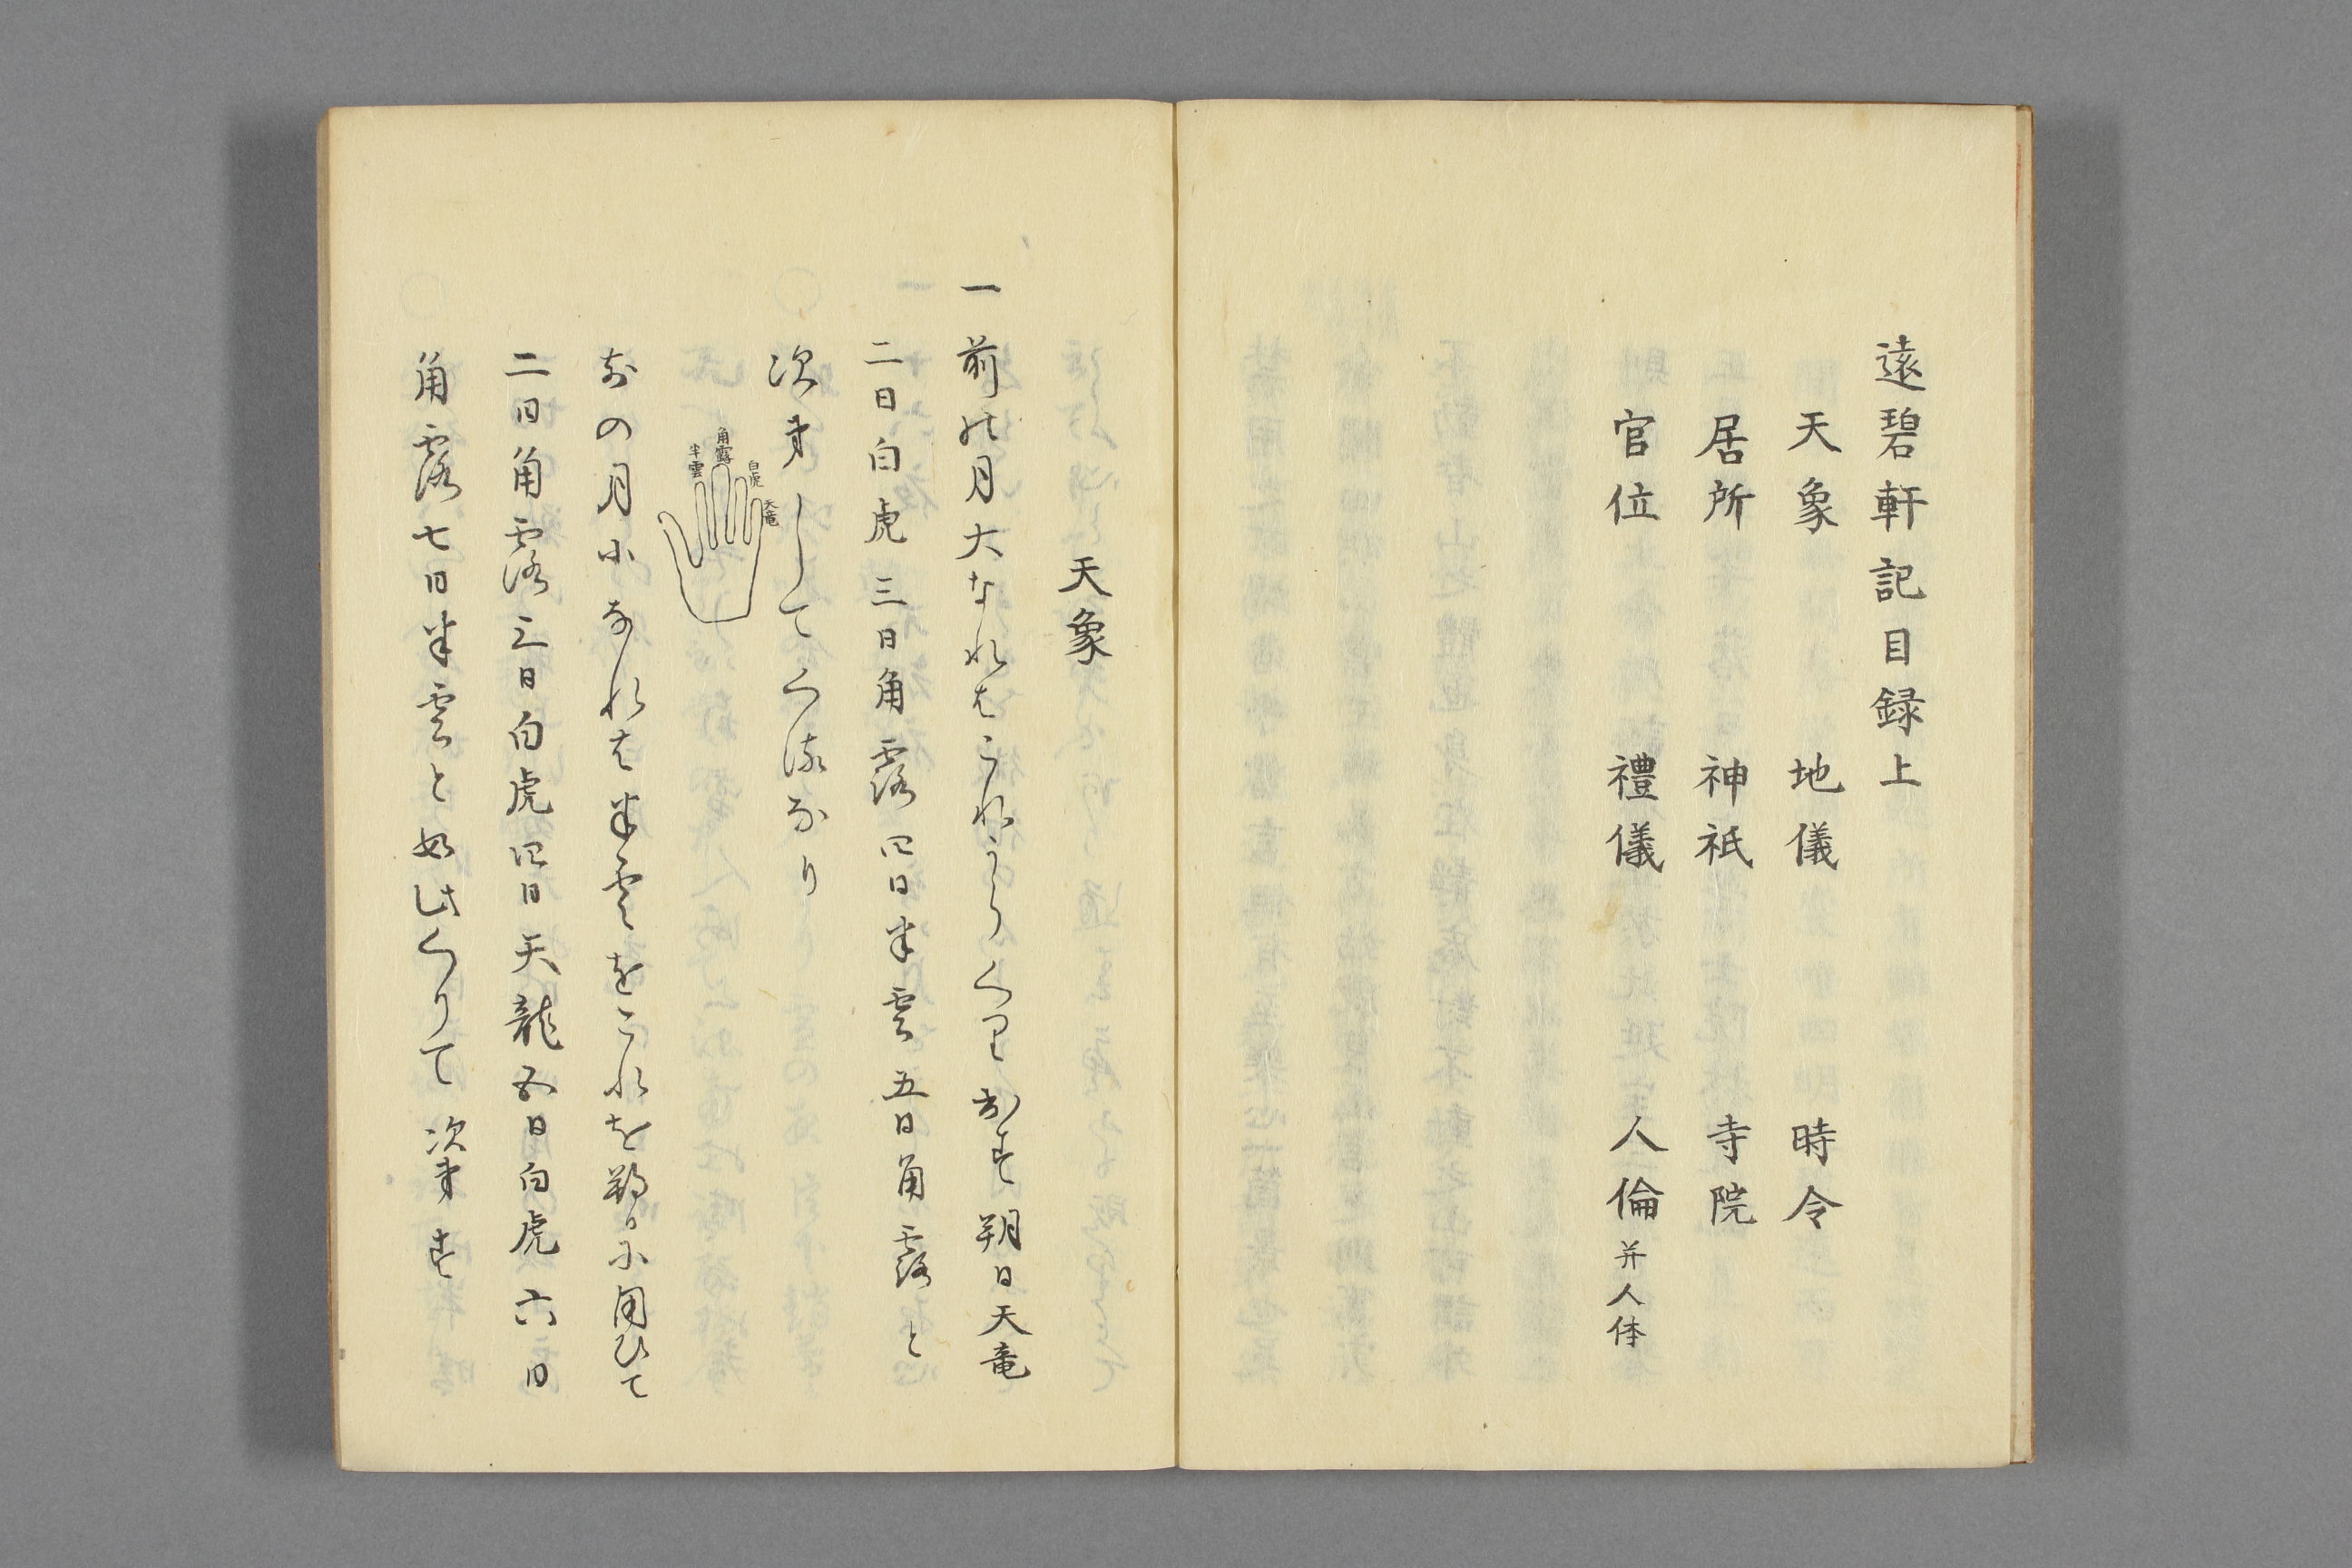 遠碧軒記目録上
天象　地儀　時令
居所　神祇　寺院
官位　禮儀　人倫并人体
天象
一前の月大なれはこれよりくり出す朔日天竜
二日白虎三日角露四日半雲五日角露と
次第してくるなり
天竜
白虎
角露
半雲
前の月小なれは半雲をこれを朔日に用ひて
二日角露三日白虎四日天龍五日白虎六日
角露七日半雲と如此くりて次第す